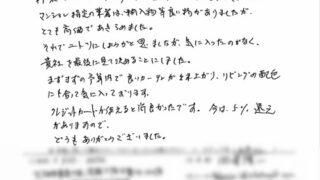 マンション指定の業者は、輸入物等良い物がありましたが、
とても高価であきらめました。
それでニトリにしようかと思いましたが、気に入ったのがなく、
貴社を最後に見て決めることにしました。
まずまずの予算内で良いカーテンが出来上がり、リビングの配色
にも合って気に入っております。
クレジットカードが使えると尚良かったです。今は、5%還元
がありますので、
どうもありがとうございました。